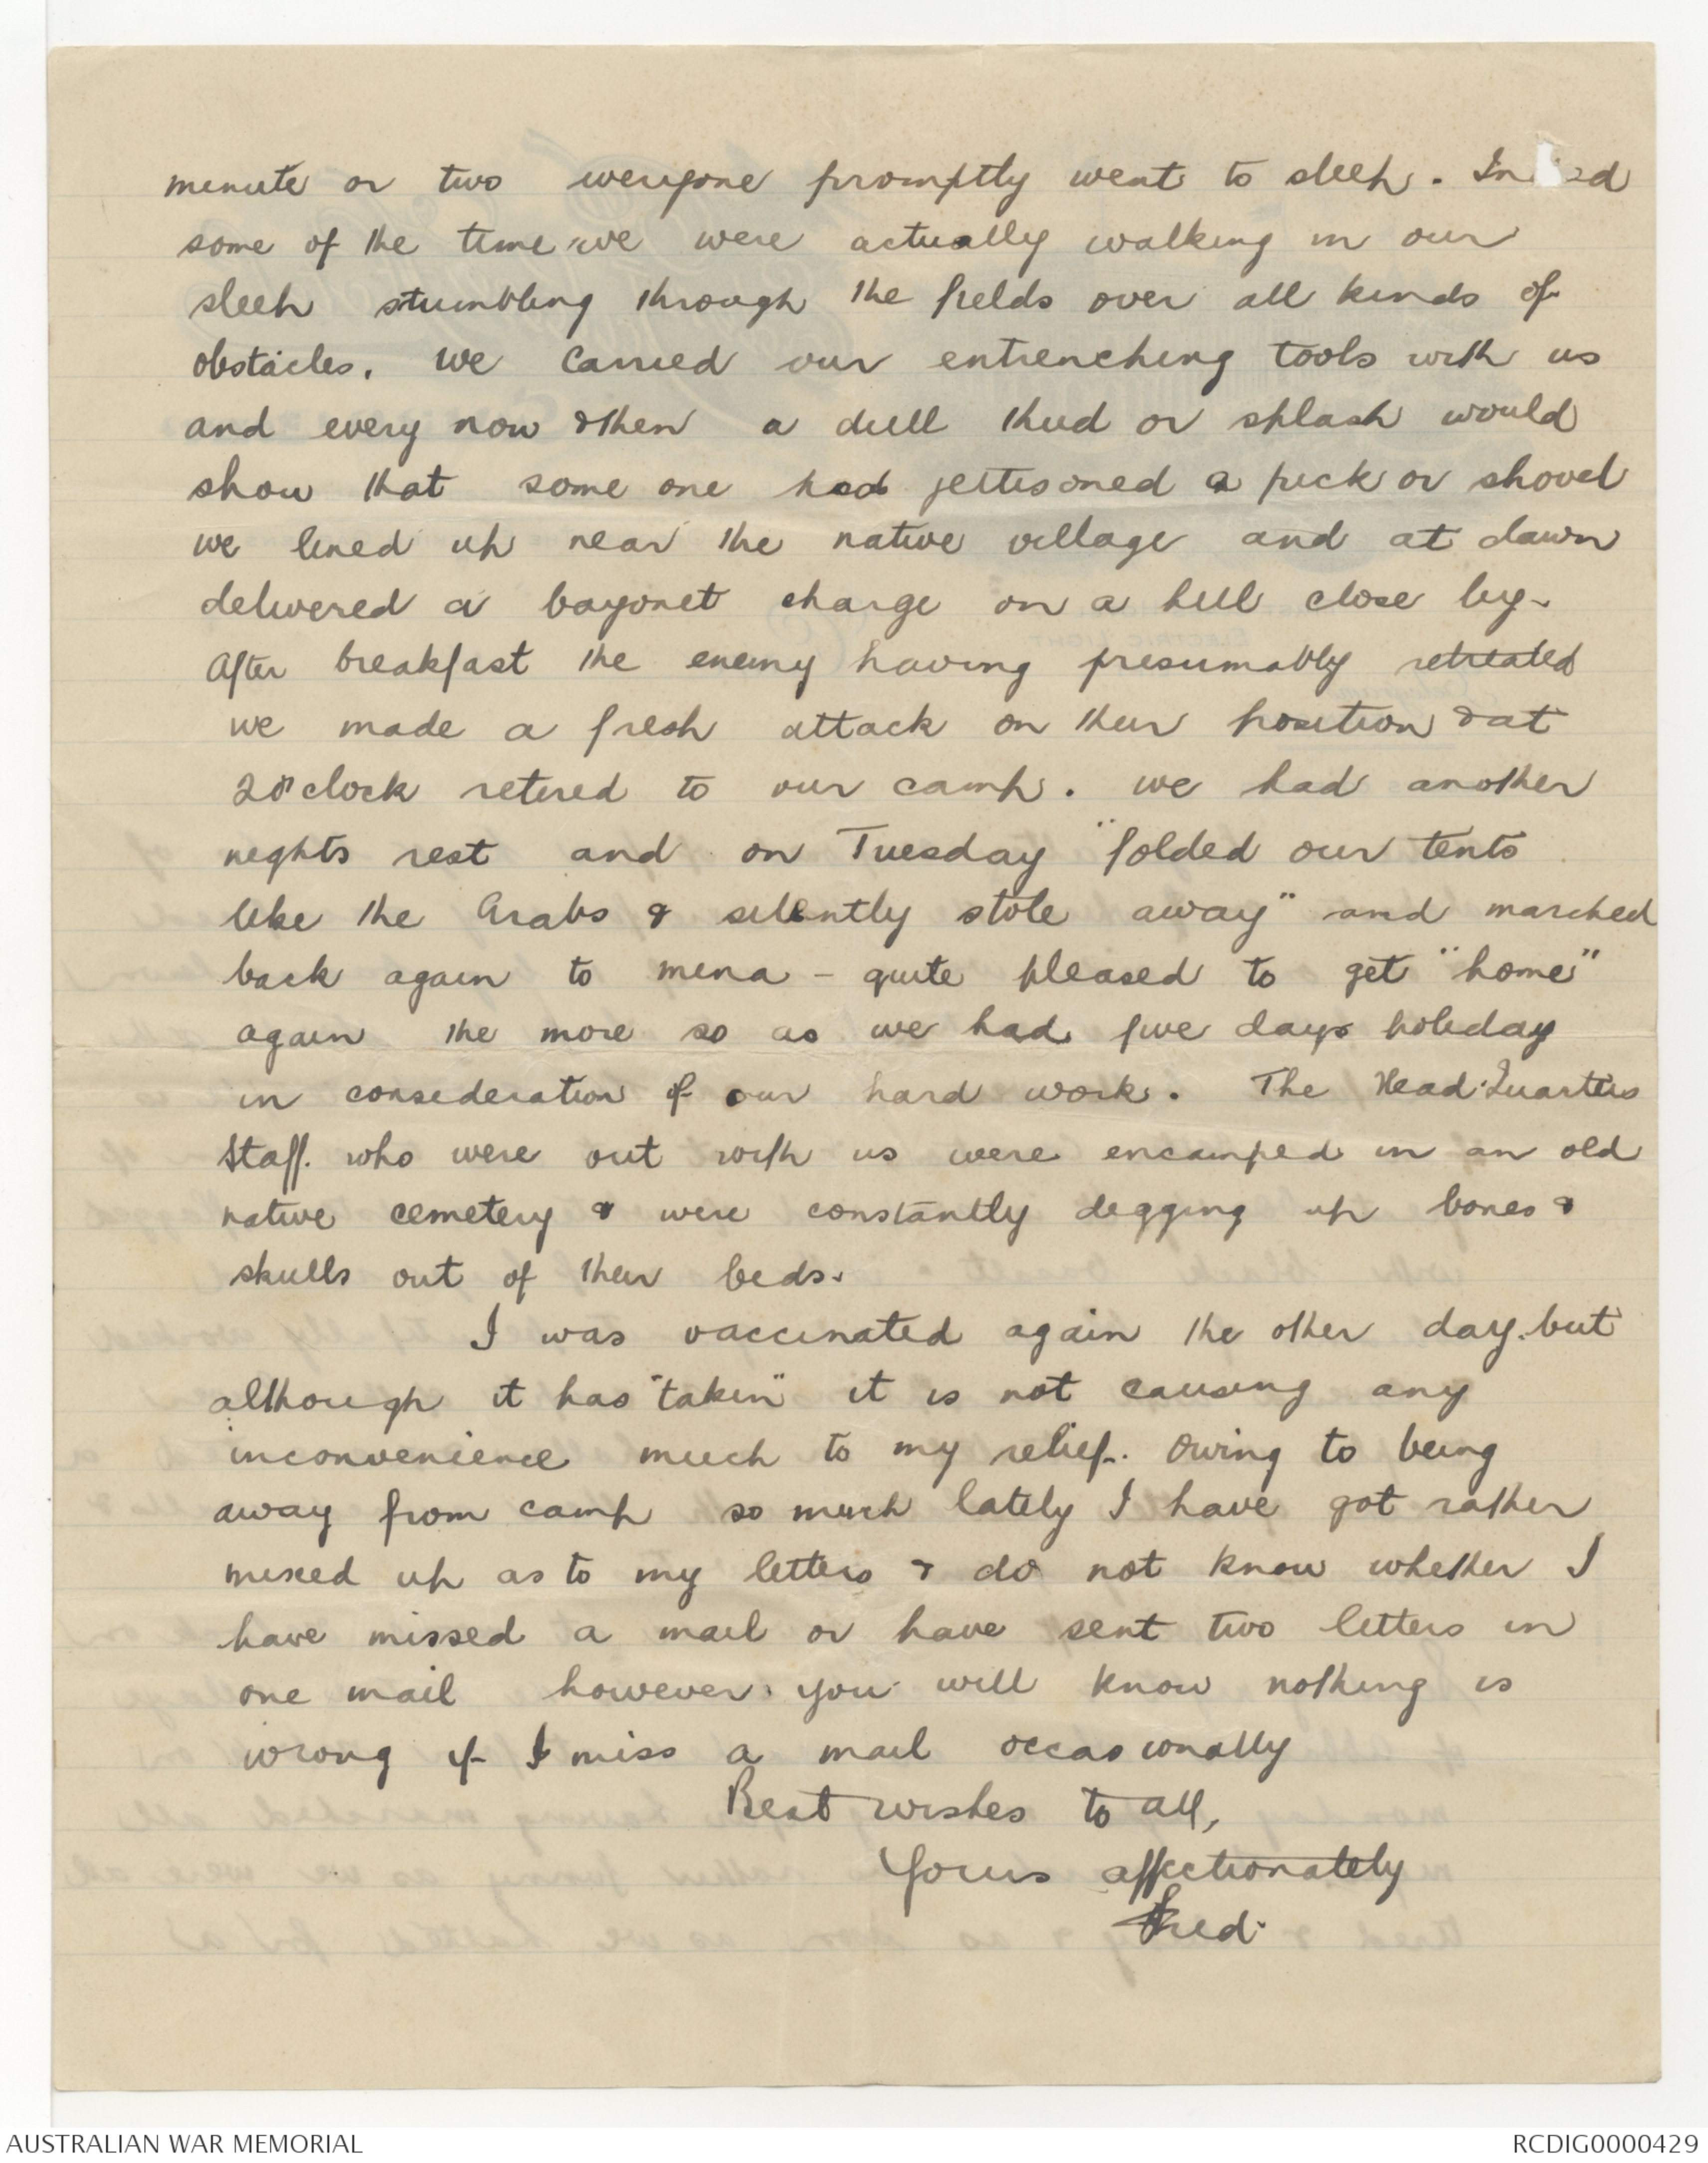 minute or two everyone promptly went to sleep. Indeed
some of the time we were actually walking in our
sleep stumbling through the fields over all kinds of
obstacles. We carried our entrenching tools with us
and every now & then a dull thud or splash would
show that some one had jettisoned a pick or shovel
we lined up near the native village and at dawn
delivered a bayonet charge on a hill close by.
After breakfast the enemy having presumably retreated
we made a fresh attack on their position & at
2 o'clock retired to our camp. We had another
nights rest and on Tuesday "folded our tents
like the Arabs & silently stole away" and marched
back again to mena - quite pleased to get "home"
again the more so as we had five days holiday
in consideration of our hard work. The Head Quarters
Staff. who were out with us were encamped in an old
native cemetery & were constantly digging up bones &
skulls out of their beds.
I was vaccinated again the other day. but
although it has "taken" it is not causing any
inconvenience much to my relief. Owing to being
away from camp so much lately I have got rather
mixed up as to my letters & do not know whether I
have missed a mail or have sent two letters in
one mail however. you will know nothing is
wrong if I miss a mail occasionally
Best wishes to all,
Yours affectionately
Fred.
AUSTRALIAN WAR MEMORIAL
RCDIG0000429